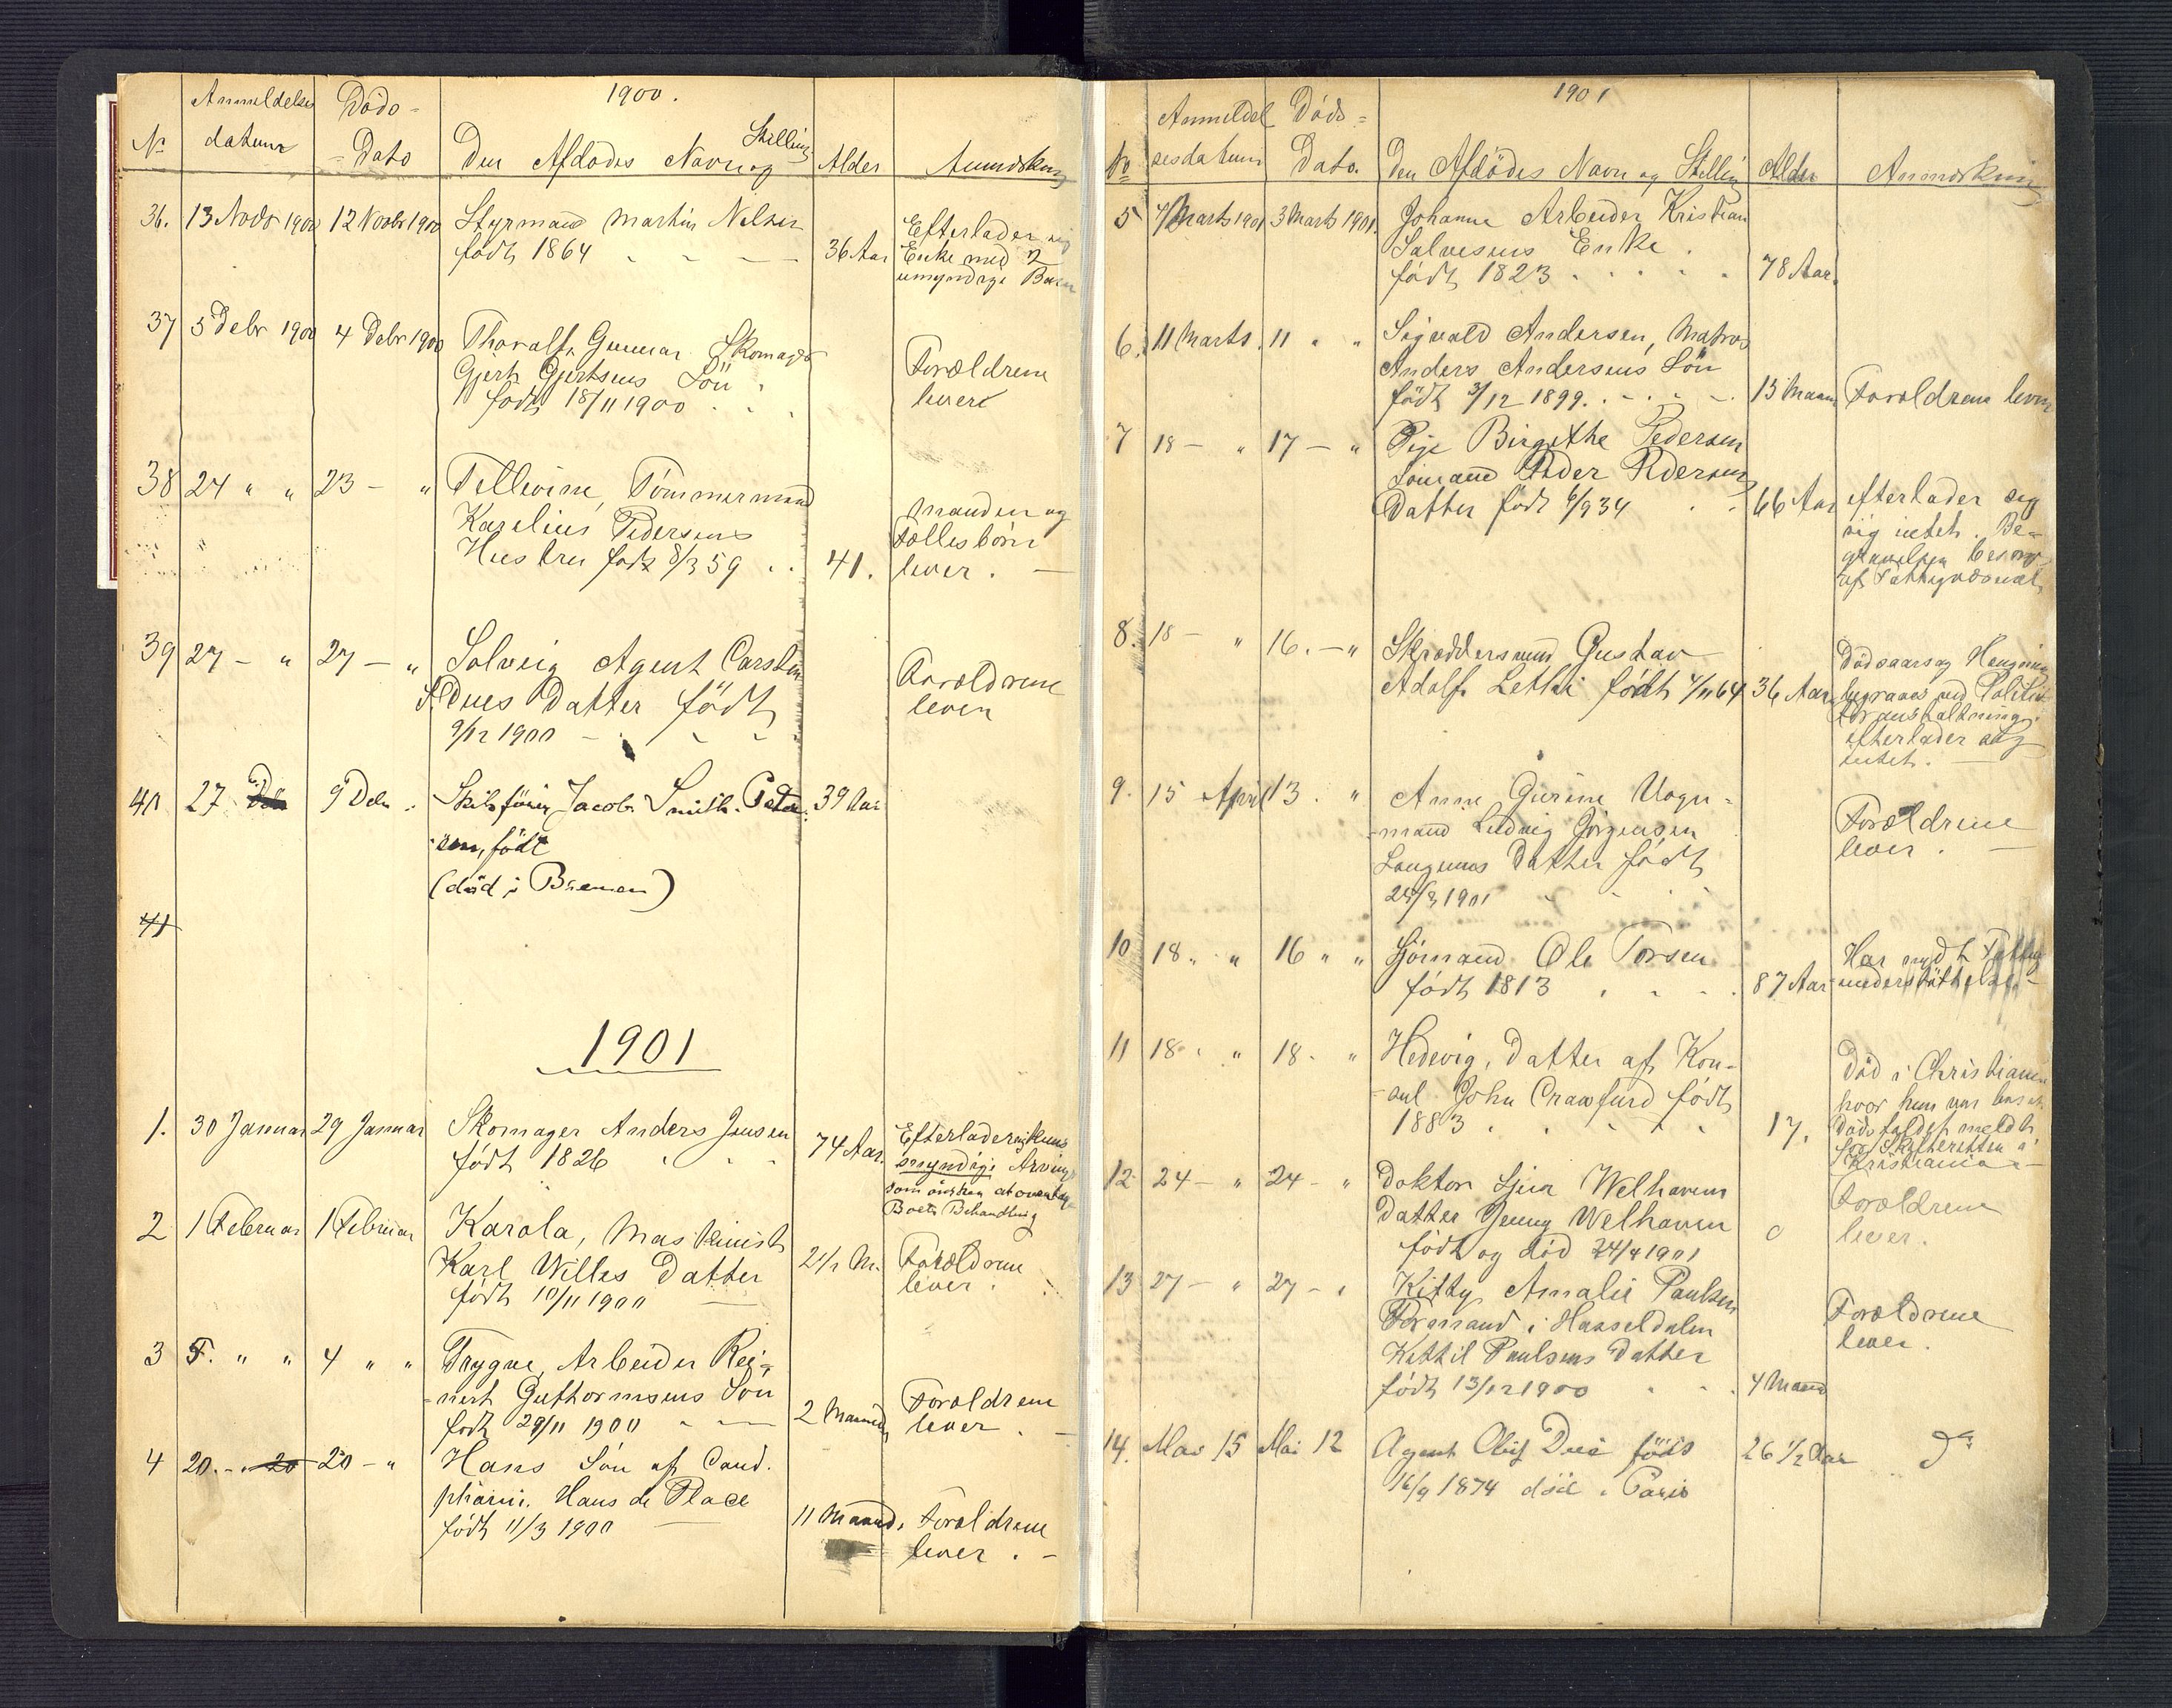 1900.
Anmeldelses Døds-
No datum Dato Den Afdødes Navn og Stilling Alder Anmærkning
36. 13 Novbr 1900 12 Novbr 1900 Styrmand Martin Nelsen Efterlader sig
født 1864 36 Aar Enke med 2
umyndige Børn
37 5 Debr 1900 4 Debr 1900 Thoralf Gunnar Skomager
Gjert Gjertsens Søn Forældrene
født 18/11 1900 lever
38 24 " " 23 - " Tellevine, Tømmermand
Karelius Pedersens Manden og
Hustru født 8/3 59 41. Fælles børn
lever.
39 27 - " 27 - " Solveig Agent Carsten
Dues Datter født Forældrene
9/12 1900 lever
40 27 9 Debr. Skibsfører Jacob Smith Peter- 39 Aar
sen, født
(død i Bremen)
41
1901
1. 30 Januar 29 Januar Skomager Anders Jensen 74 Aar. Efterlader sig kuns
født 1826 myndige Arvinger
som ønsker at overtage
Boets Behandling
2 1 Februar 1 Februar Karola, Maskinist
Karl Willes Datter 2 1/2 M. Forældrene
født 10/11 1900 lever.
3 5. " " 4 " " Trygve, Arbeider Rei-
nert Guttormsens Søn Forældrene
født 29/11 1900 2 Maaned lever.
4 20. - 20 20 - " Hans Søn af Cand.
pharm. Hans de Place
født 11/3 1900 11 Maaned. Forældrene
lever. -
1901
Anmeldel Døds-
No sesdatum Dato. Den Afdødes Navn og Stilling Alder Anmærkning
5 4 Marts 1901 3 Marts 1901. Johanne Arbeider Kristian
Salvesens Enke
født 1823 78 Aar.
6. 11 Marts. 11 " " Sigvald Andersen, Matros
Anders Andersens Søn
født 3/12 1899. 15 Maan Forældrene lever
7 18 - " 17 - " Pige Birgithe Pedersen
Sømand Peder Pedersens
Datter født 6/9 34 66 Aar efterlader sig
sig intet. Be-
gravelsen besørg
af Fattigvæsenet
8. 18 - " 16. - " Skræddersvend Gustav Dødsaarsag Hængning
Adolf født 4/11 64 36 Aar begraves ved Politiets
foranstaltning
efterlader sig
intet.
9. 15 April 13. " Anne Gurine Vogn-
mand Ludvig Jørgensen Forældrene
Langemos Datter født lever.
24/3 1901
10 18 " " 16 " " Sjømand Ole Torsen Har nydt Fattig
født 1813 87 Aar understøttelse. -
11 18 - " 18 - " Hedevig, Datter af Kon-
sul John Crawfurd født Død i Christiania
1883 17. hvor hun var bosat
Dødsfaldet meldt
for Skifteretten i
Kristiania -
12 24 - " 24 - " Doktor Welhavens
Datter Jenny Welhaven Forældrene
født og død 24/4 1901 0 lever.
13 27 - " 27 - " Kitty Amalie Paulsen
Formand i Hasseldalen Forældrene
Kittil Paulsens Datter lever.
født 13/12 1900 4 Maaned
14. Mai 15 Mai 12 Agent Oluf Due født 26 1/2 Aar
16/9 1874 død i Paris